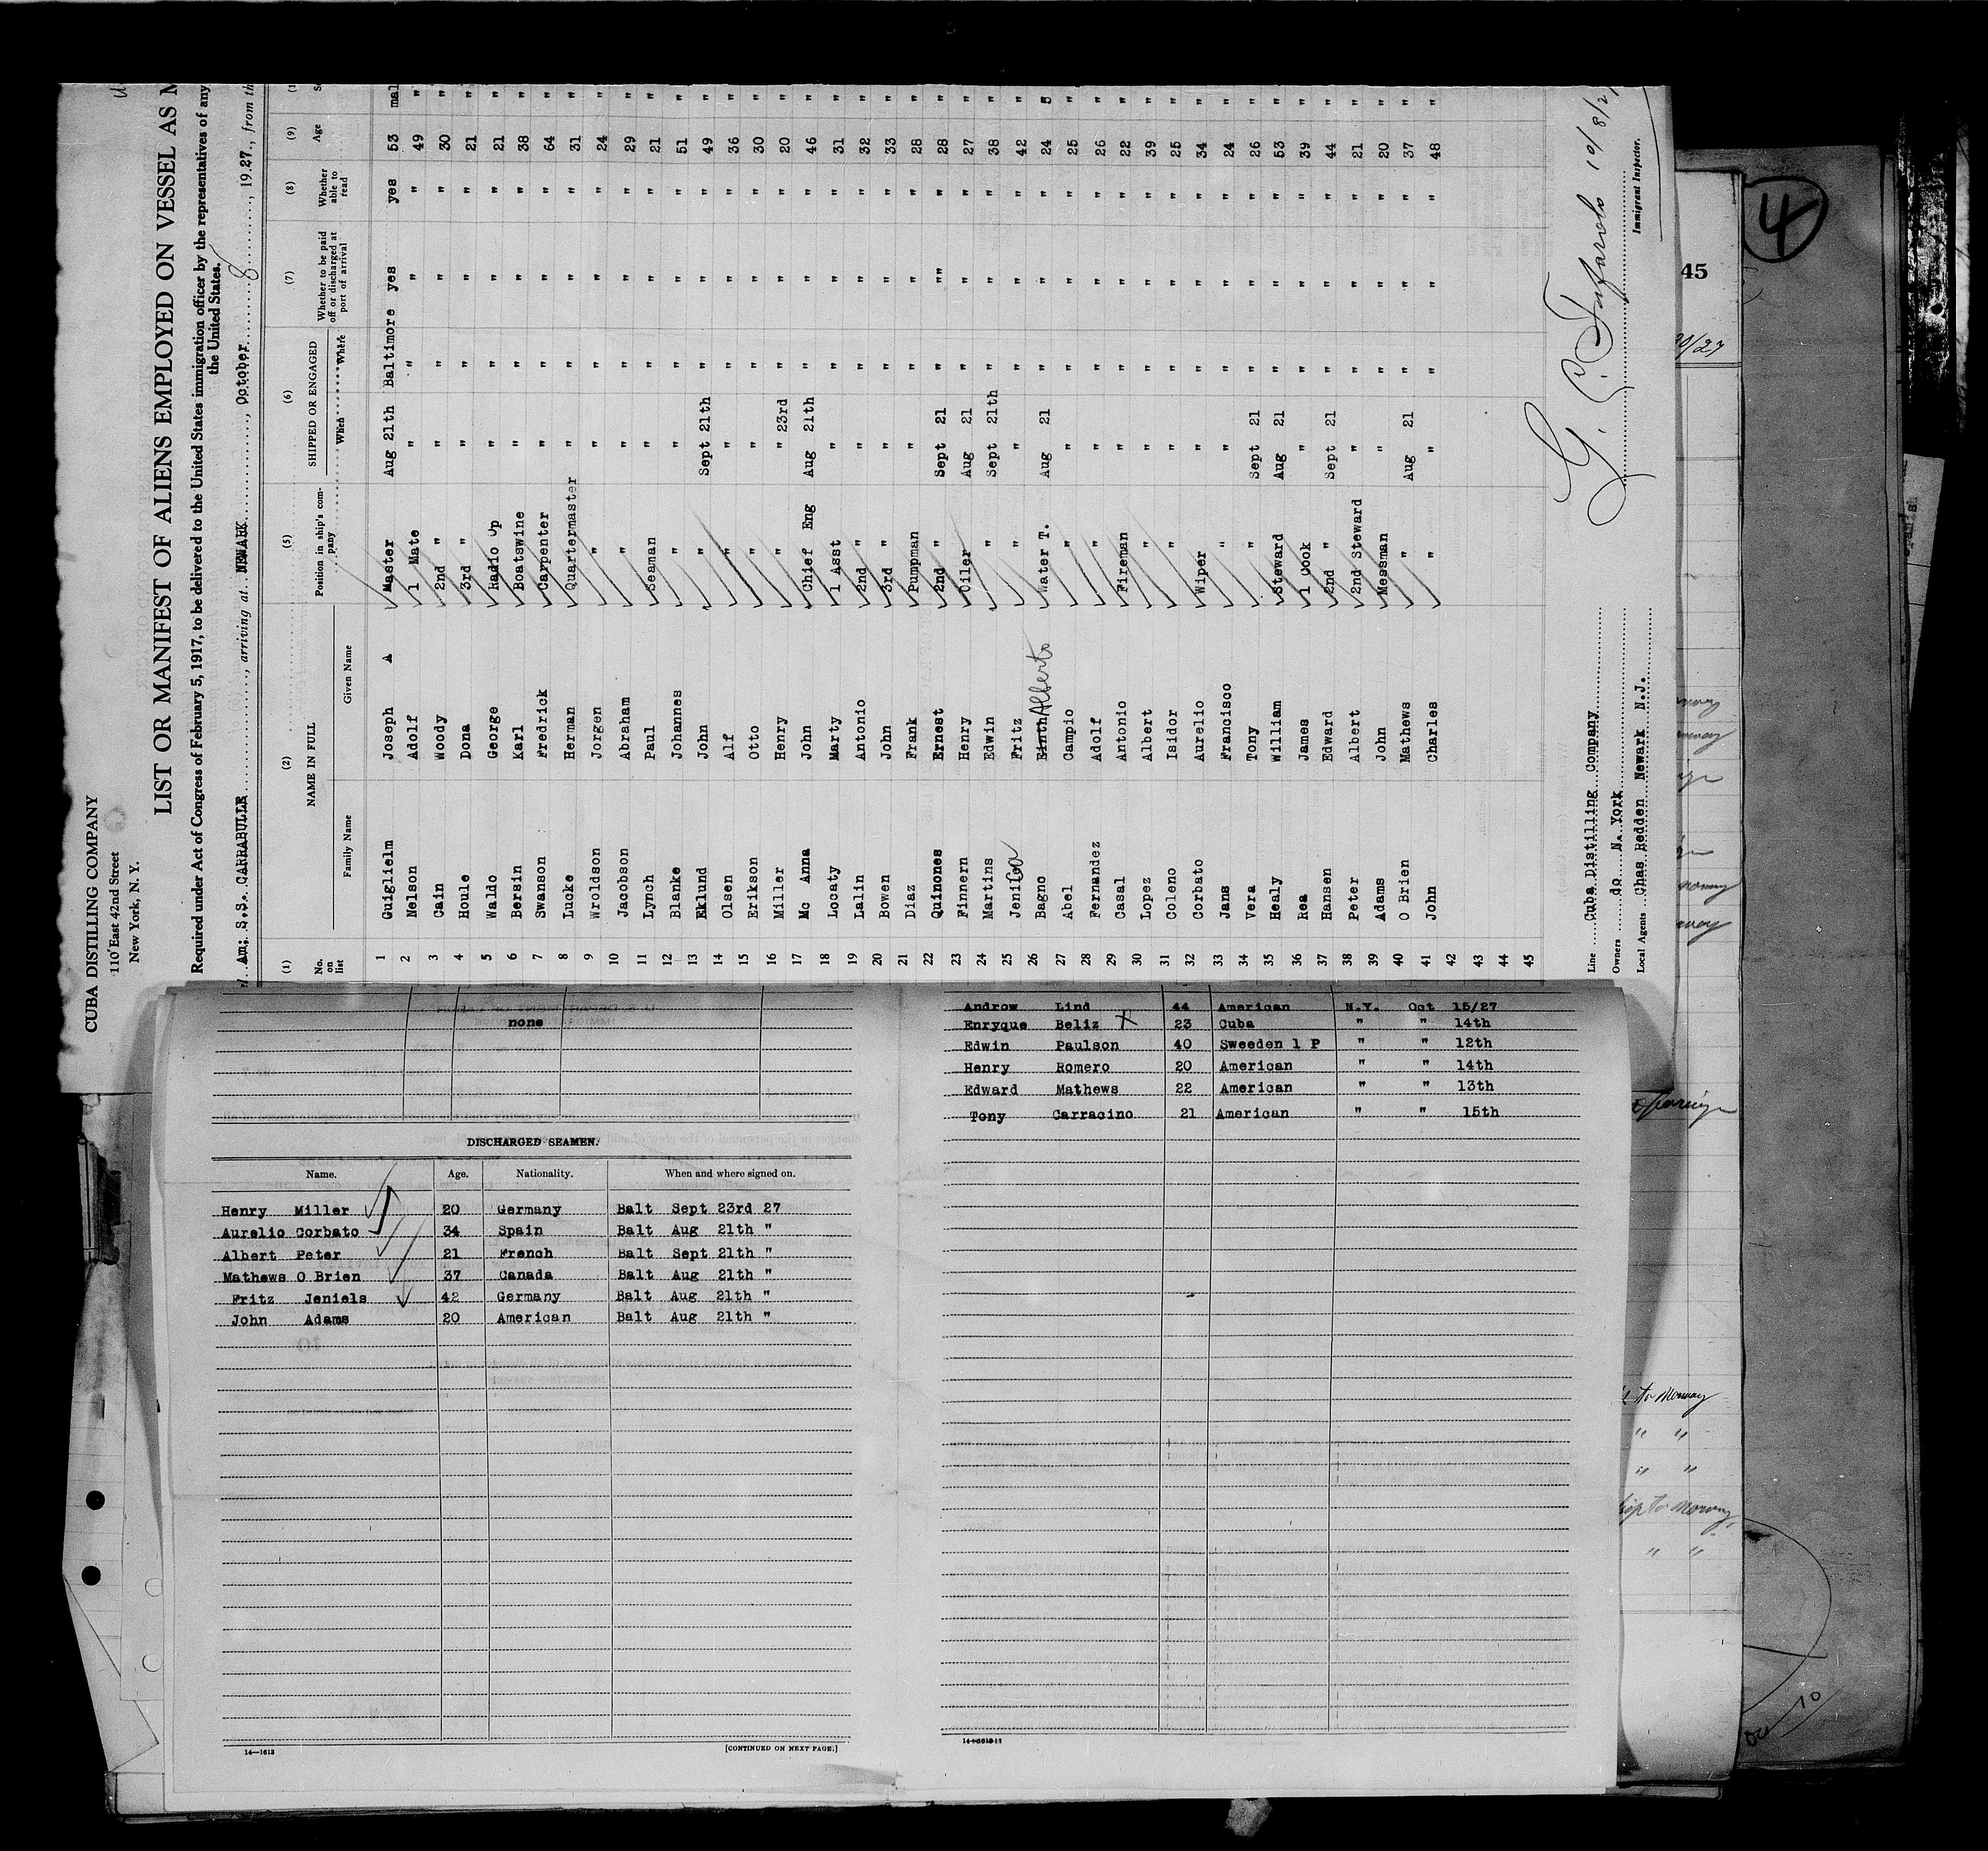 CUBA DISTILLING COMPANY
110 East 42nd Street
New York, N. Y.
LIST OR MANIFEST OF ALIENS EMPLOYED ON VESSEL AS M
Required under Act of Congress of February 5, 1917, to be delivered to the United States immigration officer by the representatives of any
the United States.
Am; S.S. CARRABULLE, arriving at NEWARK, October 8, 1927, from th
(1) (2) (5) (6) (7) (8) (9)
No. on list NAME IN FULL Family Name Given Name Position in ship's company SHIPPED OR ENGAGED When Where Whether to be paid off or discharged at port of arrival Whether able to read Age
1 Guiglielm Joseph A Master Aug 21th Baltimore yes yes 53 mal
2 Nelson Adolf 1 Mate " " " " 49 "
3 Cain Woody 2nd " " " " " 30 "
4 Houle Dona 3rd " " " " " 21 "
5 Waldo George Radio Op " " " " 21 "
6 Bersin Karl Boatswine " " " " 38 "
7 Swanson Fredrick Carpenter " " " " 64 "
8 Lucke Herman Quartermaster " " " " 31 "
9 Wroldson Jorgen " " " " " 24 "
10 Jacobson Abraham " " " " " 29 "
11 Lynch Paul Seaman " " " " 21 "
12 Blanke Johannes " " " " " 51 "
13 Eklund John " Sept 21th " " " 49 "
14 Olsen Alf " " " " " 36 "
15 Erikson Otto " " " " " 30 "
16 Miller Henry " " 23rd " " " 20 "
17 Mc Anna John Chief Eng Aug 21th " " " 46 "
18 Locaty Marty 1 Asst " " " " 31 "
19 Lalin Antonio 2nd " " " " " 32 "
20 Bowen John 3rd " " " " " 33 "
21 Diaz Frank Pumpman " " " " 28 "
22 Quinones Ernest 2nd " Sept 21 " "" " 28 "
23 Finnern Henry Oiler Aug 21 " " " 27 "
24 Martins Edwin " Sept 21th " " " 38 "
25 Jenil Fritz " " " " " 42 "
26 Bagno Einth Alberto Water T. Aug 21 " " " 24 "
27 Abel Campio " " " " " 25 "
28 Fernandez Adolf " " " " " 26 "
29 Casal Antonio Fireman " " " " 22 "
30 Lopez Albert " " " " " 39 "
31 Coleno Isidor " " " " " 25 "
32 Corbato Aurelio Wiper " " " " 34 "
33 Jans Francisco " " " " " 24 "
34 Vera Tony " Sept 21 " " " 26 "
35 Healy William Steward Aug 21 " " " 53 "
36 Rea James 1 Cook " " " " 39 "
37 Hansen Edward 2nd " Sept 21 " " " 44 "
38 Peter Albert 2nd Steward " " " " 21 "
39 Adams John Messman " " " " 20 "
40 O Brien Mathews " Aug 21 " " " 37 "
41 John Charles " " " " " 48 "
42
43
44
45
Line Cuba Distilling Company
Owners do N. York
Local Agents Chas Redden Newark N.J.
10/8/27
Immigrant Inspector.
none
DISCHARGED SEAMEN.
Name. Age. Nationality. When and where signed on.
Henry Miller 20 Germany Balt Sept 23rd 27
Aurelio Corbato 34 Spain Balt Aug 21th "
Albert Peter 21 French Balt Sept 21th "
Mathews O Brien 37 Canada Balt Aug 21th "
Fritz Jeniels 42 Germany Balt Aug 21th "
John Adams 20 American Balt Aug 21th "
14—1613
[CONTINUED ON NEXT PAGE.]
Androw Lind 44 American N.Y. Oct 15/27
Enryque Beliz X 23 Cuba " " 14th
Edwin Paulson 40 Sweeden 1 P " " 12th
Henry Romero 20 American " " 14th
Edward Mathews 22 American " " 13th
Tony Carracino 21 American " " 15th
45
4
to Norway
" "
" "
" "
10